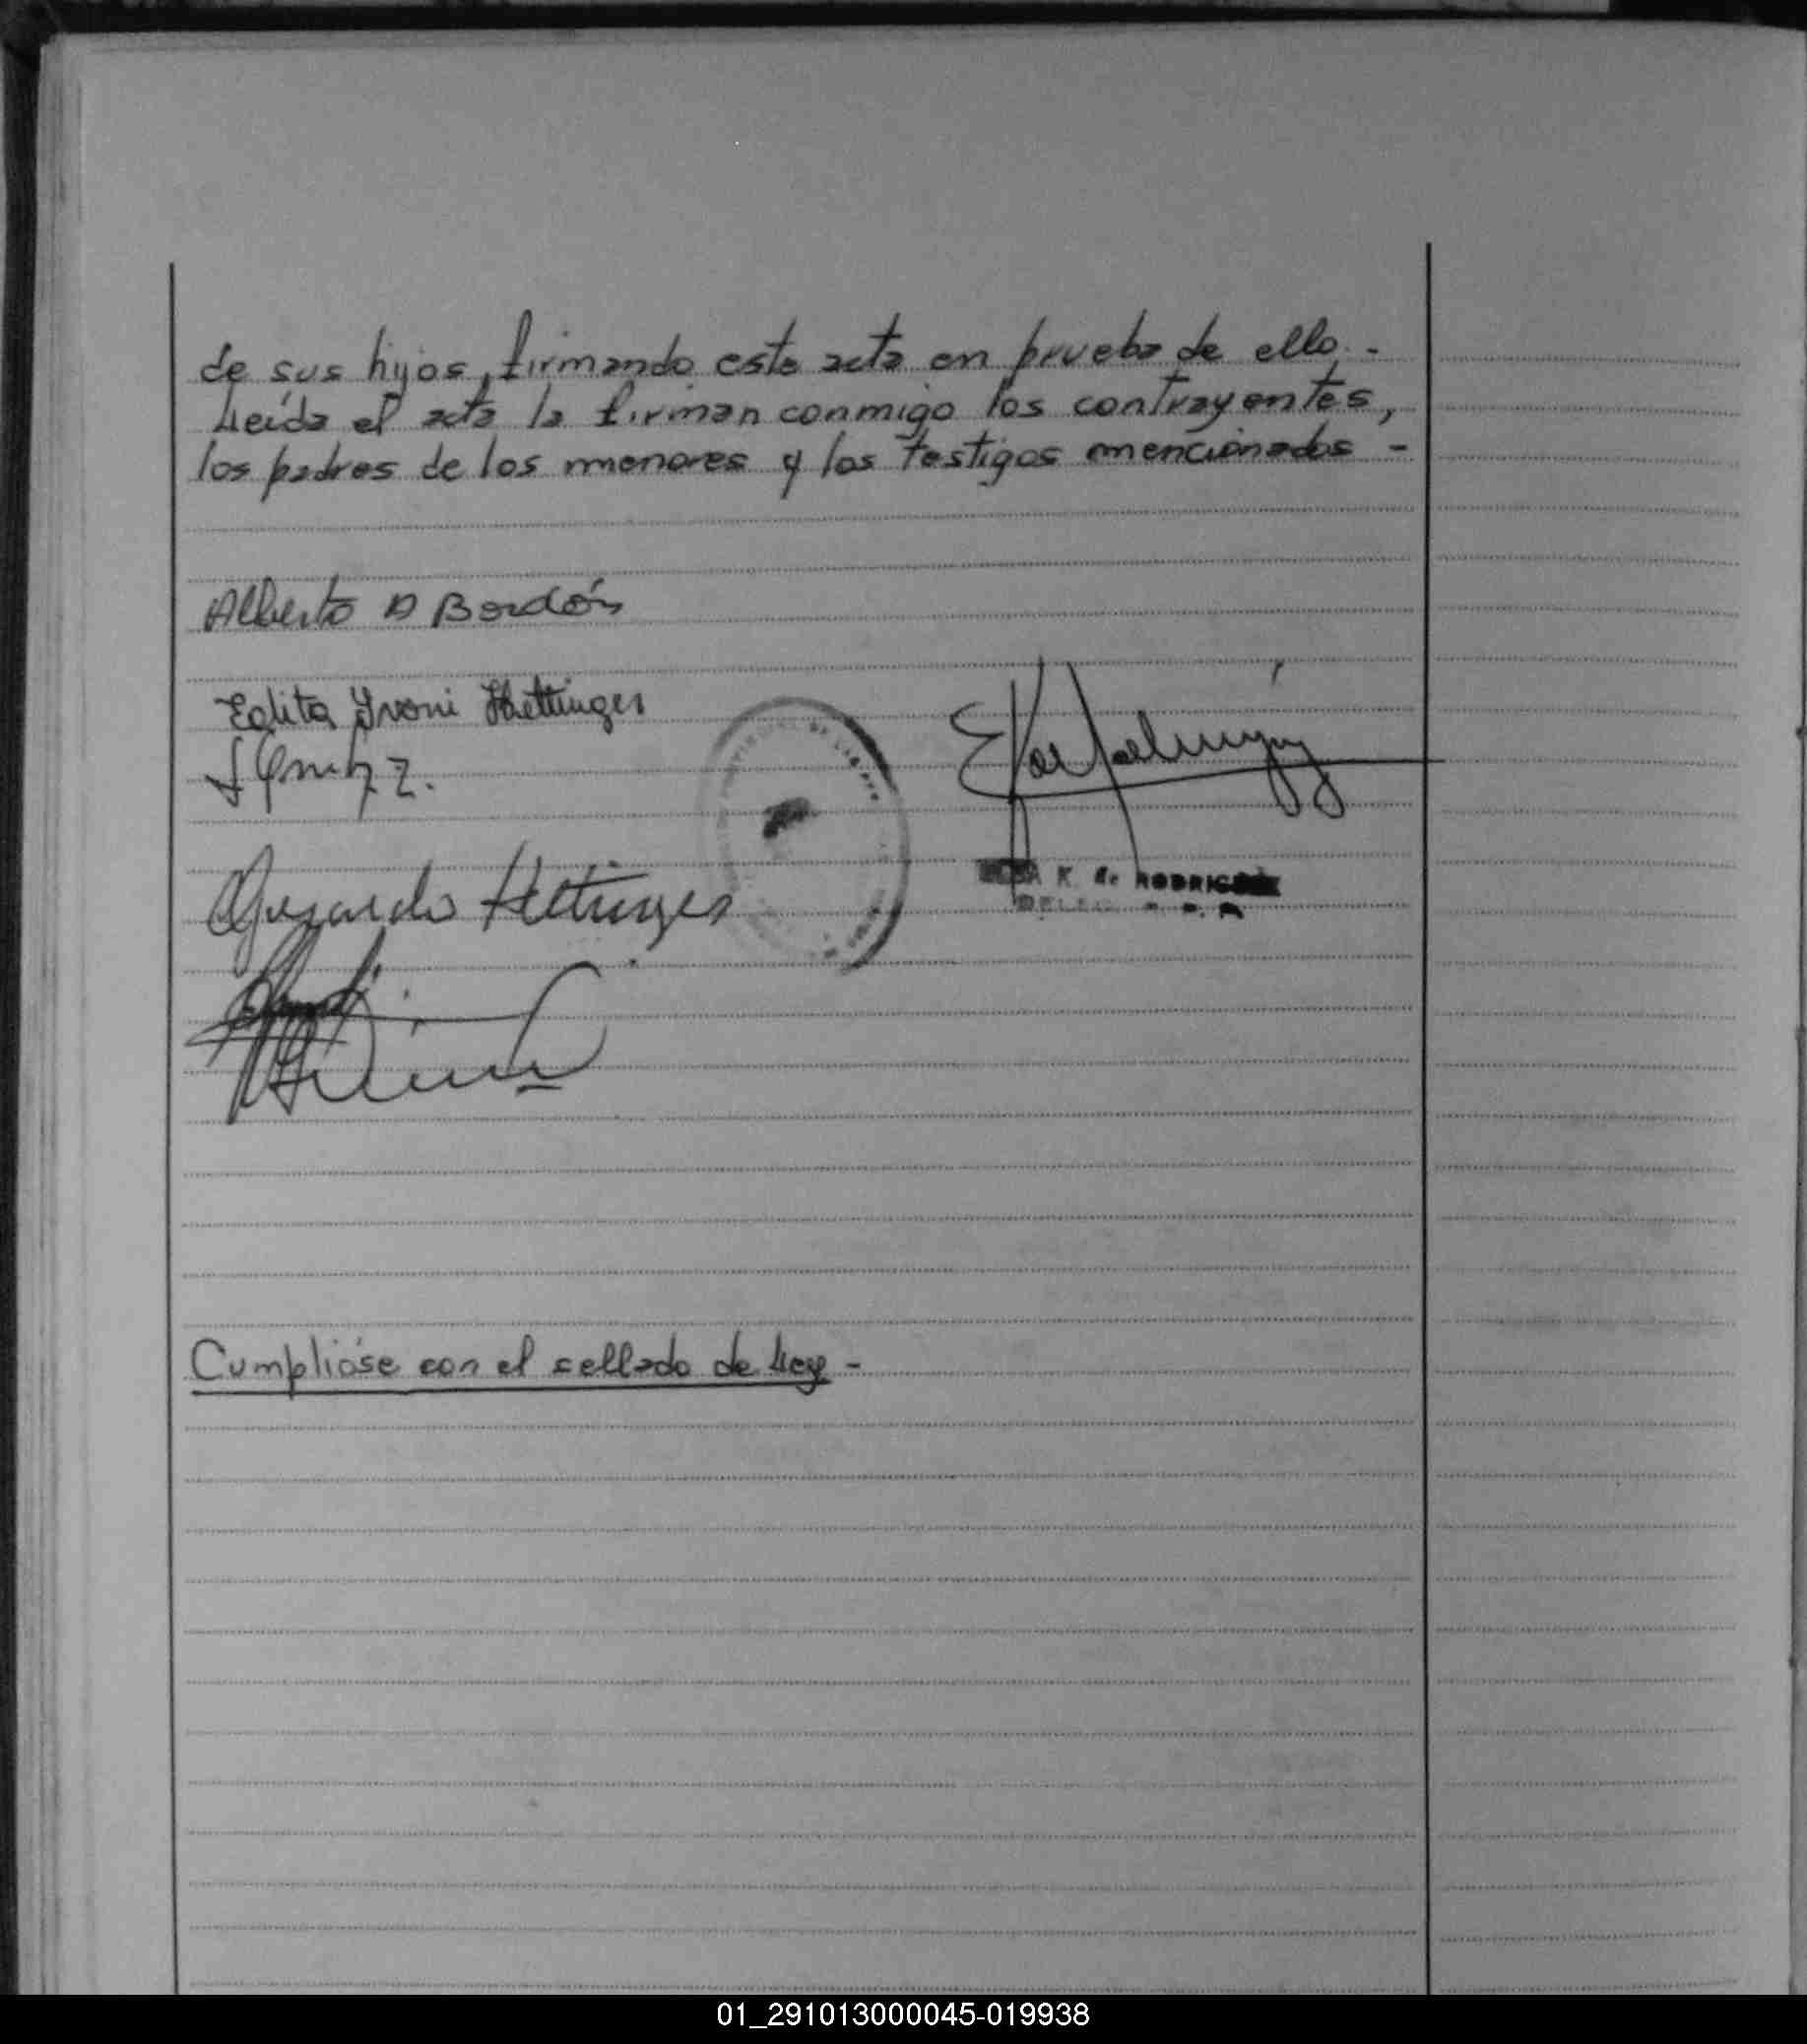 de sus hijos, firmando este acta en prueba de ello.-
Leída el acta la firman conmigo los contrayentes,
los padres de los menores y los testigos mencionados -
Alberto D Bordón
Edita Yvoni Hettinger
Gerardo Hettinger
K. de RODRIGUEZ
Cumplióse con el sellado de Ley -
01_291013000045-019938